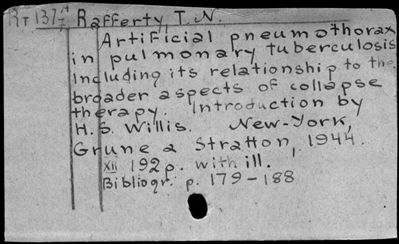 Rafferty T. N.
Artificial pneumothorax
in pulmonary tuberculosis
Including its relationship to the
broader aspects of collapse
therapy. Introduction by
H. S. Willis. New-York,
Grune a Stratton, 1944.
XII 192 p. with ill.
Bibliogr. p. 179-188